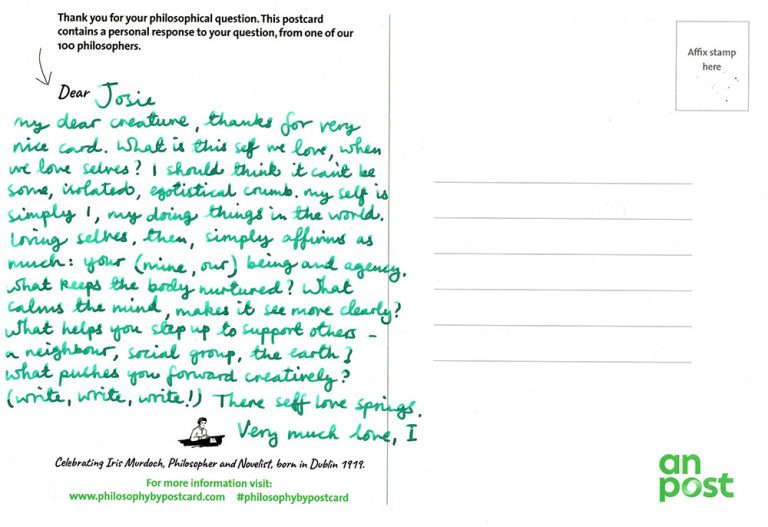 Thank you for your philosophical question. This postcard
contains a personal response to your question, from one of our
100 philosophers.
Affix stamp
here
Dear Josie
my dear creature, thanks for very
nice card. What is this self we love, when
we love selves? I should think it can't be
some, isolated, egotistical crumb. my self is
simply I, my doing things in the world.
Loving selves, then, simply affirms as
much: your (mine, our) being and agency.
What keeps the body nurtured? What
calms the mind, makes it see more clearly?
What helps you step up to support others –
a neighbour, social group, the earth?
What pushes you forward creatively?
(write, write, write!) There self love springs.
Very much love, I
Celebrating Iris Murdoch, Philosopher and Novelist, born in Dublin 1919.
For more information visit:
www.philosophybypostcard.com #philosophybypostcard
an
post